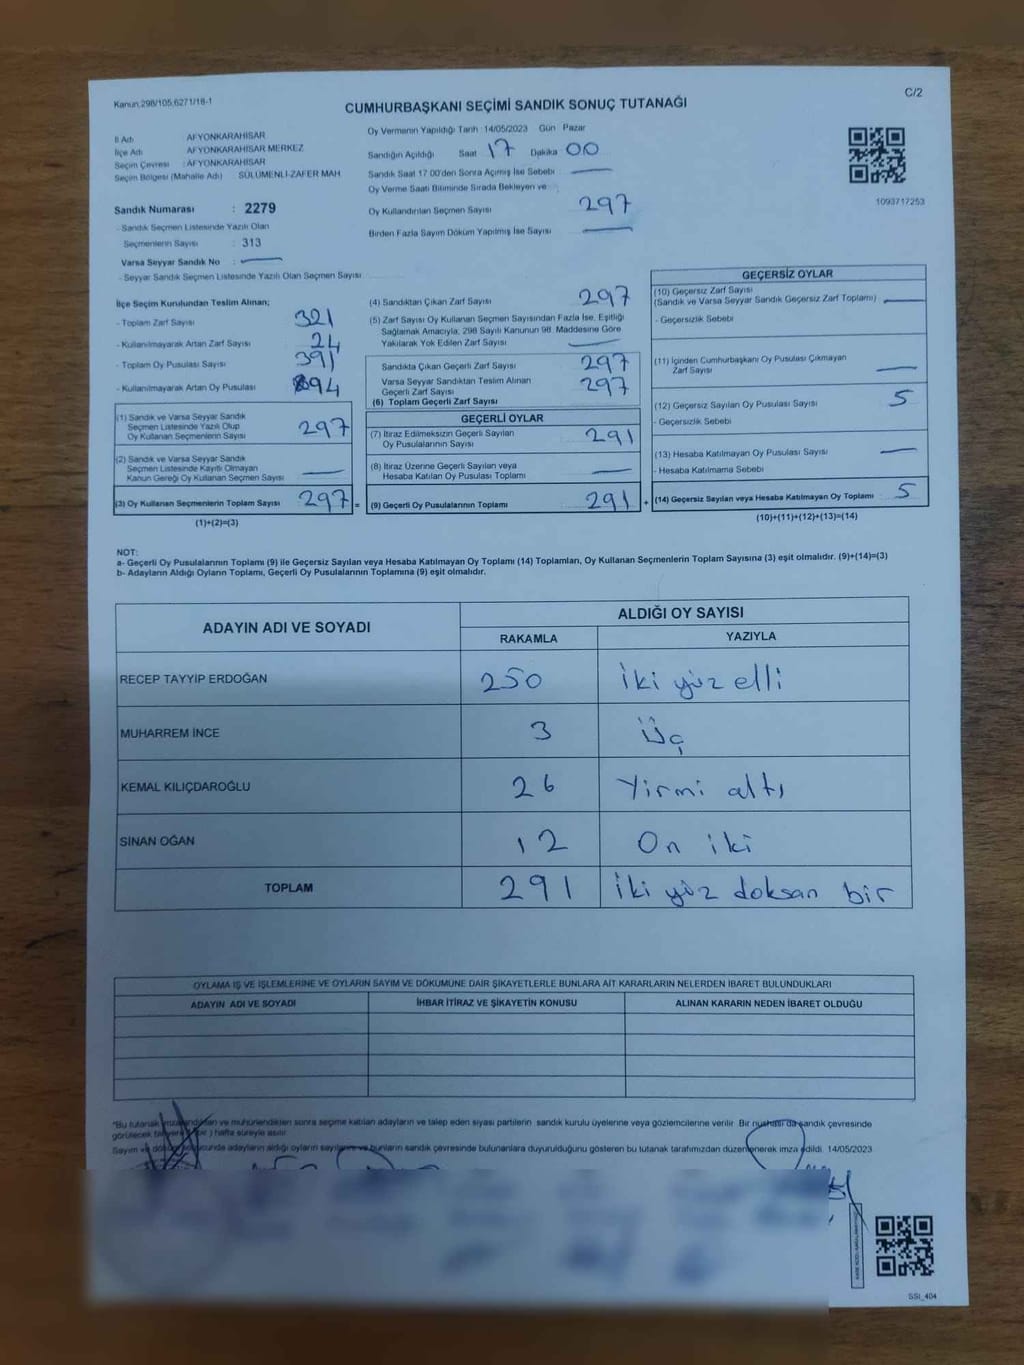 Kanun,298/105,6271/18-1
C/2
CUMHURBAŞKANI SEÇİMİ SANDIK SONUÇ TUTANAĞI
İl Adı AFYONKARAHİSAR
İlçe Adı AFYONKARAHİSAR MERKEZ
Seçim Çevresi : AFYONKARAHİSAR
Seçim Bölgesi (Mahalle Adı) SÜLÜMENLİ-ZAFER MAH
Oy Vermenin Yapıldığı Tarih : 14/05/2023 Gün Pazar
Sandığın Açıldığı Saat 17 Dakika 00
Sandık Saat 17:00'den Sonra Açılmış İse Sebebi
Oy Verme Saati Bitiminde Sırada Bekleyen ve
Oy Kullandırılan Seçmen Sayısı 297
Birden Fazla Sayım Döküm Yapılmış İse Sayısı
1093717253
Sandık Numarası : 2279
- Sandık Seçmen Listesinde Yazılı Olan
Seçmenlerin Sayısı : 313
Varsa Seyyar Sandık No :
- Seyyar Sandık Seçmen Listesinde Yazılı Olan Seçmen Sayısı
İlçe Seçim Kurulundan Teslim Alınan;
- Toplam Zarf Sayısı 321
- Kullanılmayarak Artan Zarf Sayısı 24
- Toplam Oy Pusulası Sayısı 391
- Kullanılmayarak Artan Oy Pusulası 94
(1) Sandık ve Varsa Seyyar Sandık
Seçmen Listesinde Yazılı Olup
Oy Kullanan Seçmenlerin Sayısı 297
(2) Sandık ve Varsa Seyyar Sandık
Seçmen Listesinde Kayıtlı Olmayan
Kanun Gereği Oy Kullanan Seçmen Sayısı
(3) Oy Kullanan Seçmenlerin Toplam Sayısı 297 =
(1)+(2)=(3)
(4) Sandıktan Çıkan Zarf Sayısı 297
(5) Zarf Sayısı Oy Kullanan Seçmen Sayısından Fazla İse, Eşitliği
Sağlamak Amacıyla; 298 Sayılı Kanunun 98. Maddesine Göre
Yakılarak Yok Edilen Zarf Sayısı
Sandıkta Çıkan Geçerli Zarf Sayısı 297
Varsa Seyyar Sandıktan Teslim Alınan 297
Geçerli Zarf Sayısı
(6) Toplam Geçerli Zarf Sayısı
GEÇERLİ OYLAR
(7) İtiraz Edilmeksizin Geçerli Sayılan
Oy Pusulalarının Sayısı 291
(8) İtiraz Üzerine Geçerli Sayılan veya
Hesaba Katılan Oy Pusulası Toplamı
(9) Geçerli Oy Pusulalarının Toplamı 291 +
GEÇERSİZ OYLAR
(10) Geçersiz Zarf Sayısı
(Sandık ve Varsa Seyyar Sandık Geçersiz Zarf Toplamı)
- Geçersizlik Sebebi
(11) İçinden Cumhurbaşkanı Oy Pusulası Çıkmayan
Zarf Sayısı
(12) Geçersiz Sayılan Oy Pusulası Sayısı 5
- Geçersizlik Sebebi
(13) Hesaba Katılmayan Oy Pusulası Sayısı
- Hesaba Katılmama Sebebi
(14) Geçersiz Sayılan veya Hesaba Katılmayan Oy Toplamı 5
(10)+(11)+(12)+(13)=(14)
NOT:
a- Geçerli Oy Pusulalarının Toplamı (9) ile Geçersiz Sayılan veya Hesaba Katılmayan Oy Toplamı (14) Toplamları, Oy Kullanan Seçmenlerin Toplam Sayısına (3) eşit olmalıdır. (9)+(14)=(3)
b- Adayların Aldığı Oyların Toplamı, Geçerli Oy Pusulalarının Toplamına (9) eşit olmalıdır.
ADAYIN ADI VE SOYADI
ALDIĞI OY SAYISI
RAKAMLA YAZIYLA
RECEP TAYYİP ERDOĞAN 250 İki yüz elli
MUHARREM İNCE 3 Üç
KEMAL KILIÇDAROĞLU 26 Yirmi altı
SİNAN OĞAN 12 On iki
TOPLAM 291 İki yüz doksan bir
OYLAMA İŞ VE İŞLEMLERİNE VE OYLARIN SAYIM VE DÖKÜMÜNE DAİR ŞİKAYETLERLE BUNLARA AİT KARARLARIN NELERDEN İBARET BULUNDUKLARI
ADAYIN ADI VE SOYADI İHBAR İTİRAZ VE ŞİKAYETİN KONUSU ALINAN KARARIN NEDEN İBARET OLDUĞU
"Bu tutanak imzalandıktan ve mühürlendikten sonra seçime katılan adayların ve talep eden siyasi partilerin sandık kurulu üyelerine veya gözlemcilerine verilir. Bir nüshası da sandık çevresinde
görülecek bir yere ( bir ) hafta süreyle asılır
Sayım ve döküm sonucunda adayların aldığı oyların sayılarını ve bunların sandık çevresinde bulunanlara duyurulduğunu gösteren bu tutanak tarafımızdan düzenlenerek imza edildi. 14/05/2023
SSI_404